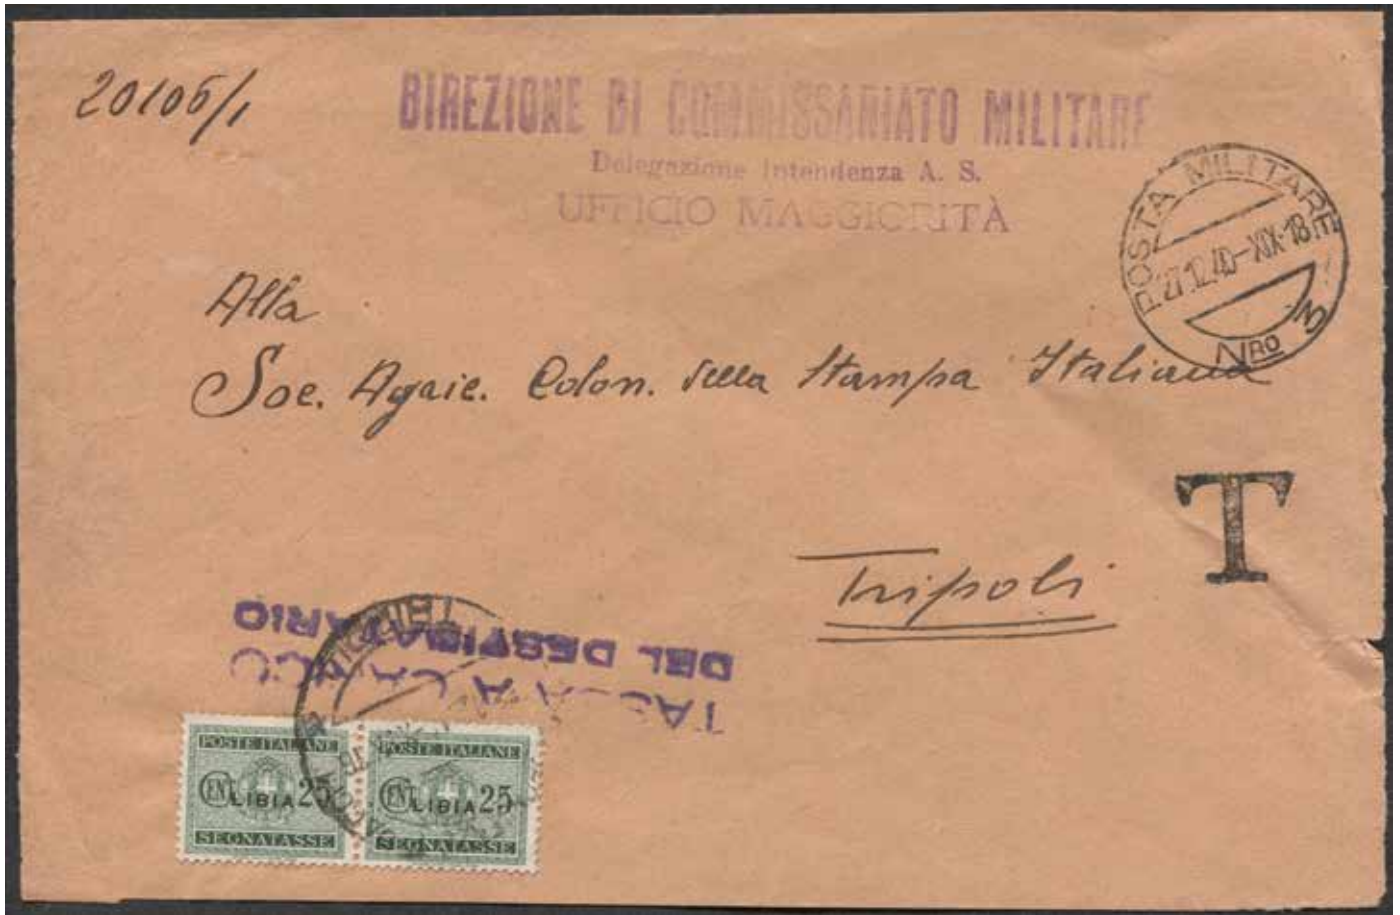 20106/1
DIREZIONE DI COMMISSARIATO MILITARE
Delegazione Intendenza A. S.
UFFICIO MAGGIORITÀ
POSTA MILITARE
27.12.40-XIX.18
NRO 3
Alla
Soc. Agric. Colon. della Stampa Italiana
T
Tripoli
TASSA A CARICO
DEL DESTINATARIO
TRIPOLI
POSTE ITALIANE POSTE ITALIANE
CENT LIBIA 25 CENT LIBIA 25
SEGNATASSE SEGNATASSE